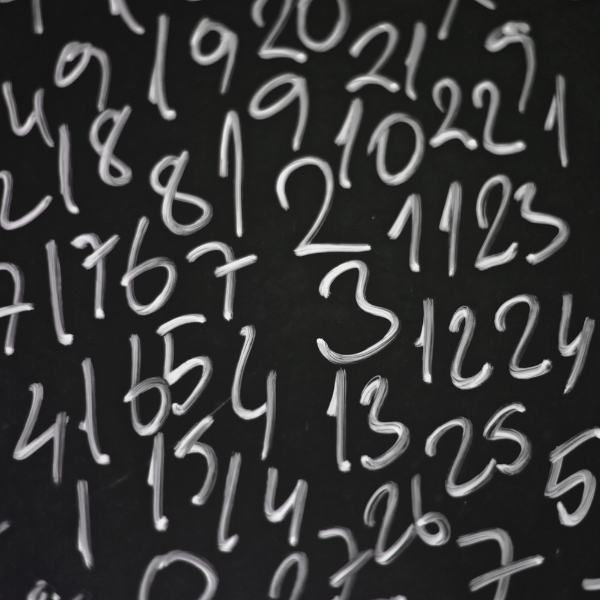 20
9 19 21 9
4 9 10 22 1
18 1
8 2 11 23
2 17 6 7
7 3 12 24
16 5 4
4 1 13 25 5
15 14 26
1 7
2